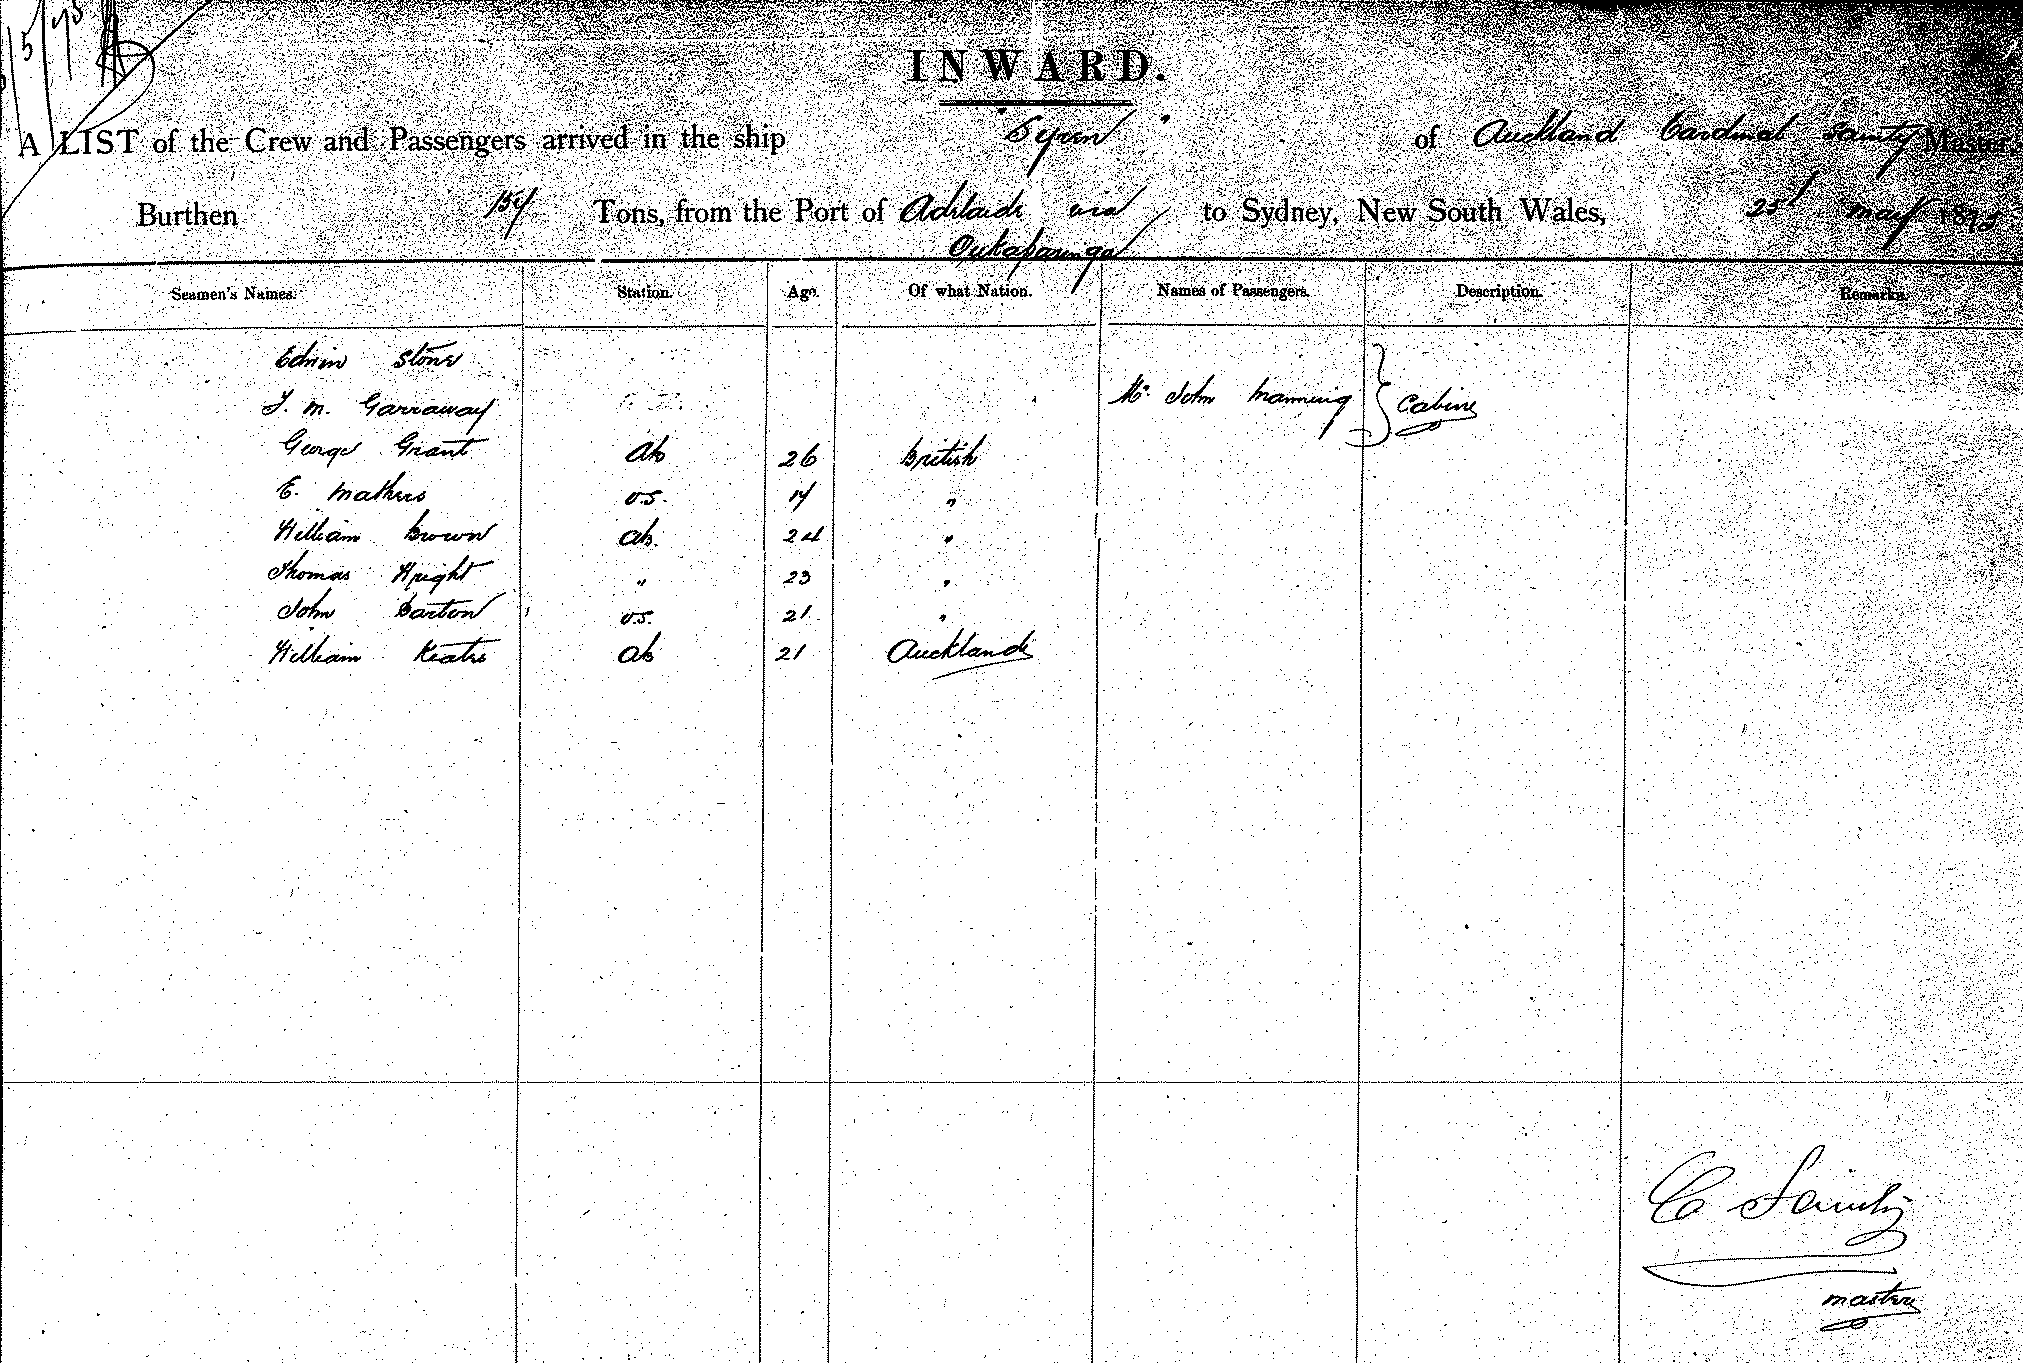 5/95
INWARD.
A LIST of the Crew and Passengers arrived in the ship "Syren" of Auckland Cardinal Sainty Master,
Burthen 154 Tons, from the Port of Adelaide via to Sydney, New South Wales, 25 May 1895
Onkaparinga
Seamen's Names. Station. Age. Of what Nation. Names of Passengers. Description. Remarks.
Edwin Stone
J. M. Garraway Mr. John Manning } Cabin
George Grant Ab 26 British
E. Mathers O.S. 17 "
William Brown Ab. 24 "
Thomas Wright " 23 "
John Barton O.S. 21 "
William Keates Ab 21 Auckland
C Sainty
Master